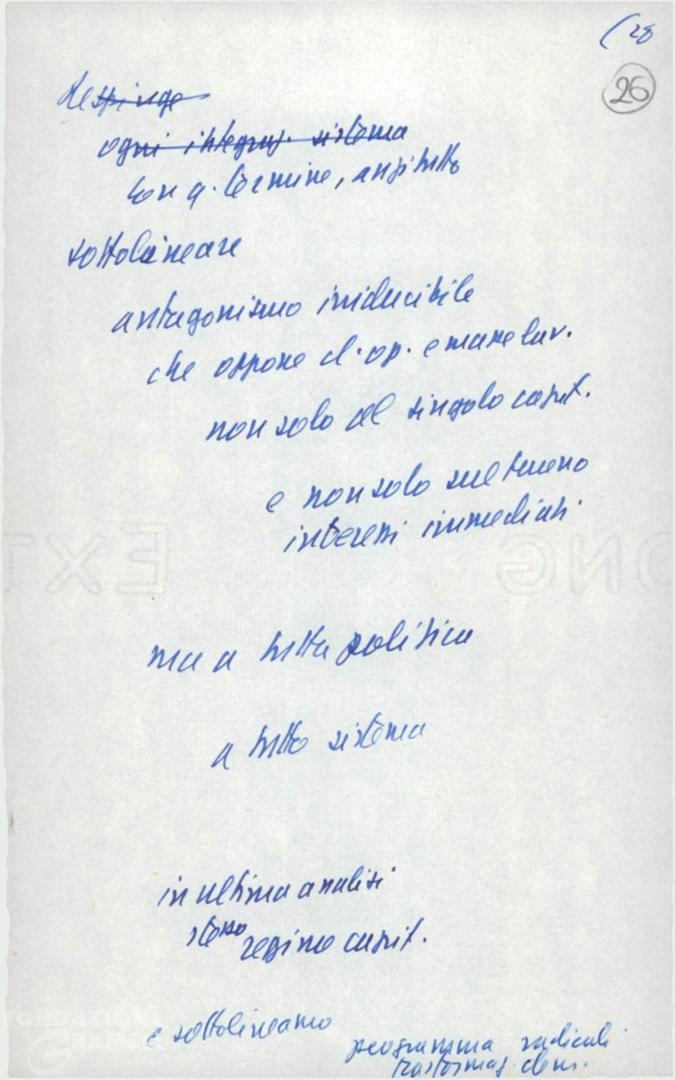 (28
26
Respinge
ogni integraz. sistema
con q. termine, anzitutto
sottolineare
antagonismo irriducibile
che oppone cl. op. e masse lav.
non solo al singolo capit.
e non solo sul terreno
interessi immediati
ma a tutta politica
a tutto sistema
in ultima analisi
stesso regime capit.
e sottolineamo
programma radicali
trasformaz. dem.
FONDAZION
G